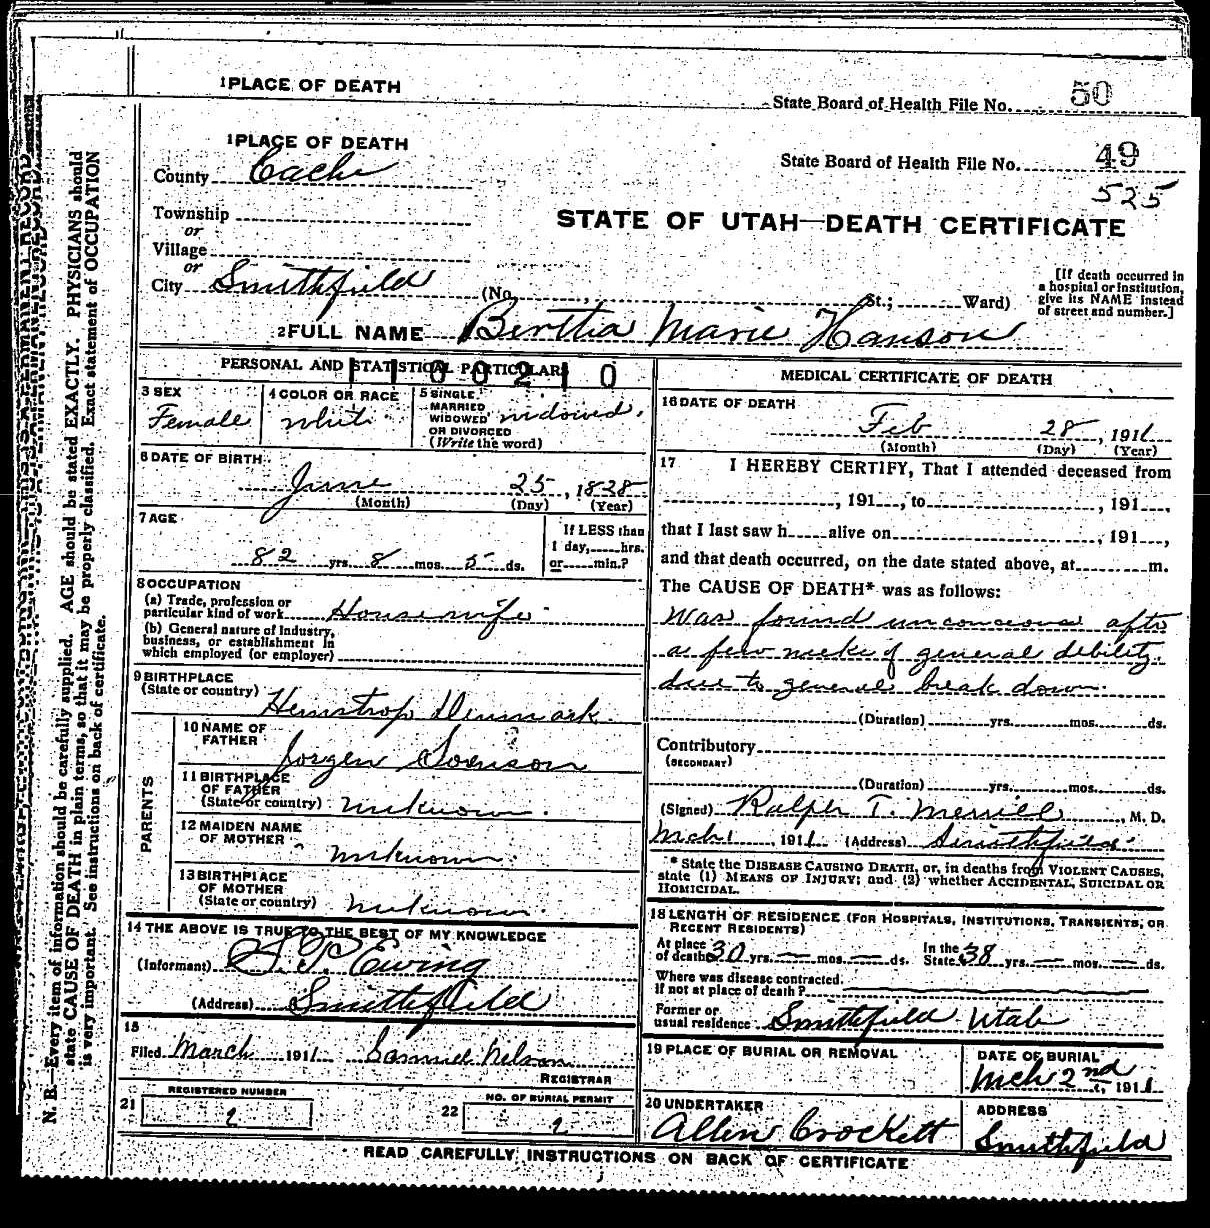 1 PLACE OF DEATH
State Board of Health File No. 50
1 PLACE OF DEATH
State Board of Health File No. 49
County Cache
525
Township
or
STATE OF UTAH—DEATH CERTIFICATE
Village
or
City Smithfield (No. St.; Ward)
[If death occurred in a hospital or institution, give its NAME instead of street and number.]
2 FULL NAME Bertha Marie Hanson
PERSONAL AND STATISTICAL PARTICULARS
1100210
3 SEX
Female
4 COLOR OR RACE
white
5 SINGLE, MARRIED WIDOWED OR DIVORCED
(Write the word)
widowed.
6 DATE OF BIRTH
June 25, 1828
(Month) (Day) (Year)
7 AGE
82 yrs. 8 mos. 5 ds.
If LESS than
1 day, hrs.
or min.?
8 OCCUPATION
(a) Trade, profession or
particular kind of work Housewife
(b) General nature of industry,
business, or establishment in
which employed (or employer)
9 BIRTHPLACE
(State or country) Denmark.
PARENTS
10 NAME OF
FATHER Jorgen
11 BIRTHPLACE
OF FATHER
(State or country) unknown.
12 MAIDEN NAME
OF MOTHER unknown.
13 BIRTHPLACE
OF MOTHER
(State or country) unknown.
14 THE ABOVE IS TRUE TO THE BEST OF MY KNOWLEDGE
(Informant) Ewing
(Address) Smithfield
15
Filed March 1911 Samuel Nelson
REGISTRAR
21 REGISTERED NUMBER
2
22 NO. OF BURIAL PERMIT
2
MEDICAL CERTIFICATE OF DEATH
16 DATE OF DEATH
Feb 28, 1911
(Month) (Day) (Year)
17 I HEREBY CERTIFY, That I attended deceased from
, 191 , to , 191 ,
that I last saw h alive on , 191 ,
and that death occurred, on the date stated above, at m.
The CAUSE OF DEATH* was as follows:
Was found unconcious after
a few weeks of general debility
due to general break down.
(Duration) yrs. mos. ds.
Contributory
(SECONDARY)
(Duration) yrs. mos. ds.
(Signed) Ralph T. Merrill, M. D.
Mch 1, 1911 (Address) Smithfield
* State the DISEASE CAUSING DEATH, or, in deaths from VIOLENT CAUSES,
state (1) MEANS OF INJURY; and (2) whether ACCIDENTAL, SUICIDAL OR
HOMICIDAL.
18 LENGTH OF RESIDENCE (FOR HOSPITALS, INSTITUTIONS, TRANSIENTS, OR
RECENT RESIDENTS)
At place of death 30 yrs. — mos. — ds. In the State 38 yrs. — mos. — ds.
Where was disease contracted,
if not at place of death?
Former or
usual residence Smithfield Utah
19 PLACE OF BURIAL OR REMOVAL
DATE OF BURIAL
Mch 2nd, 1911
20 UNDERTAKER
Allen Crockett
ADDRESS
Smithfield
READ CAREFULLY INSTRUCTIONS ON BACK OF CERTIFICATE
N. B. Every item of information should be carefully supplied. AGE should be stated EXACTLY. PHYSICIANS should
state CAUSE OF DEATH in plain terms, so that it may be properly classified. Exact statement of OCCUPATION
is very important. See instructions on back of certificate.